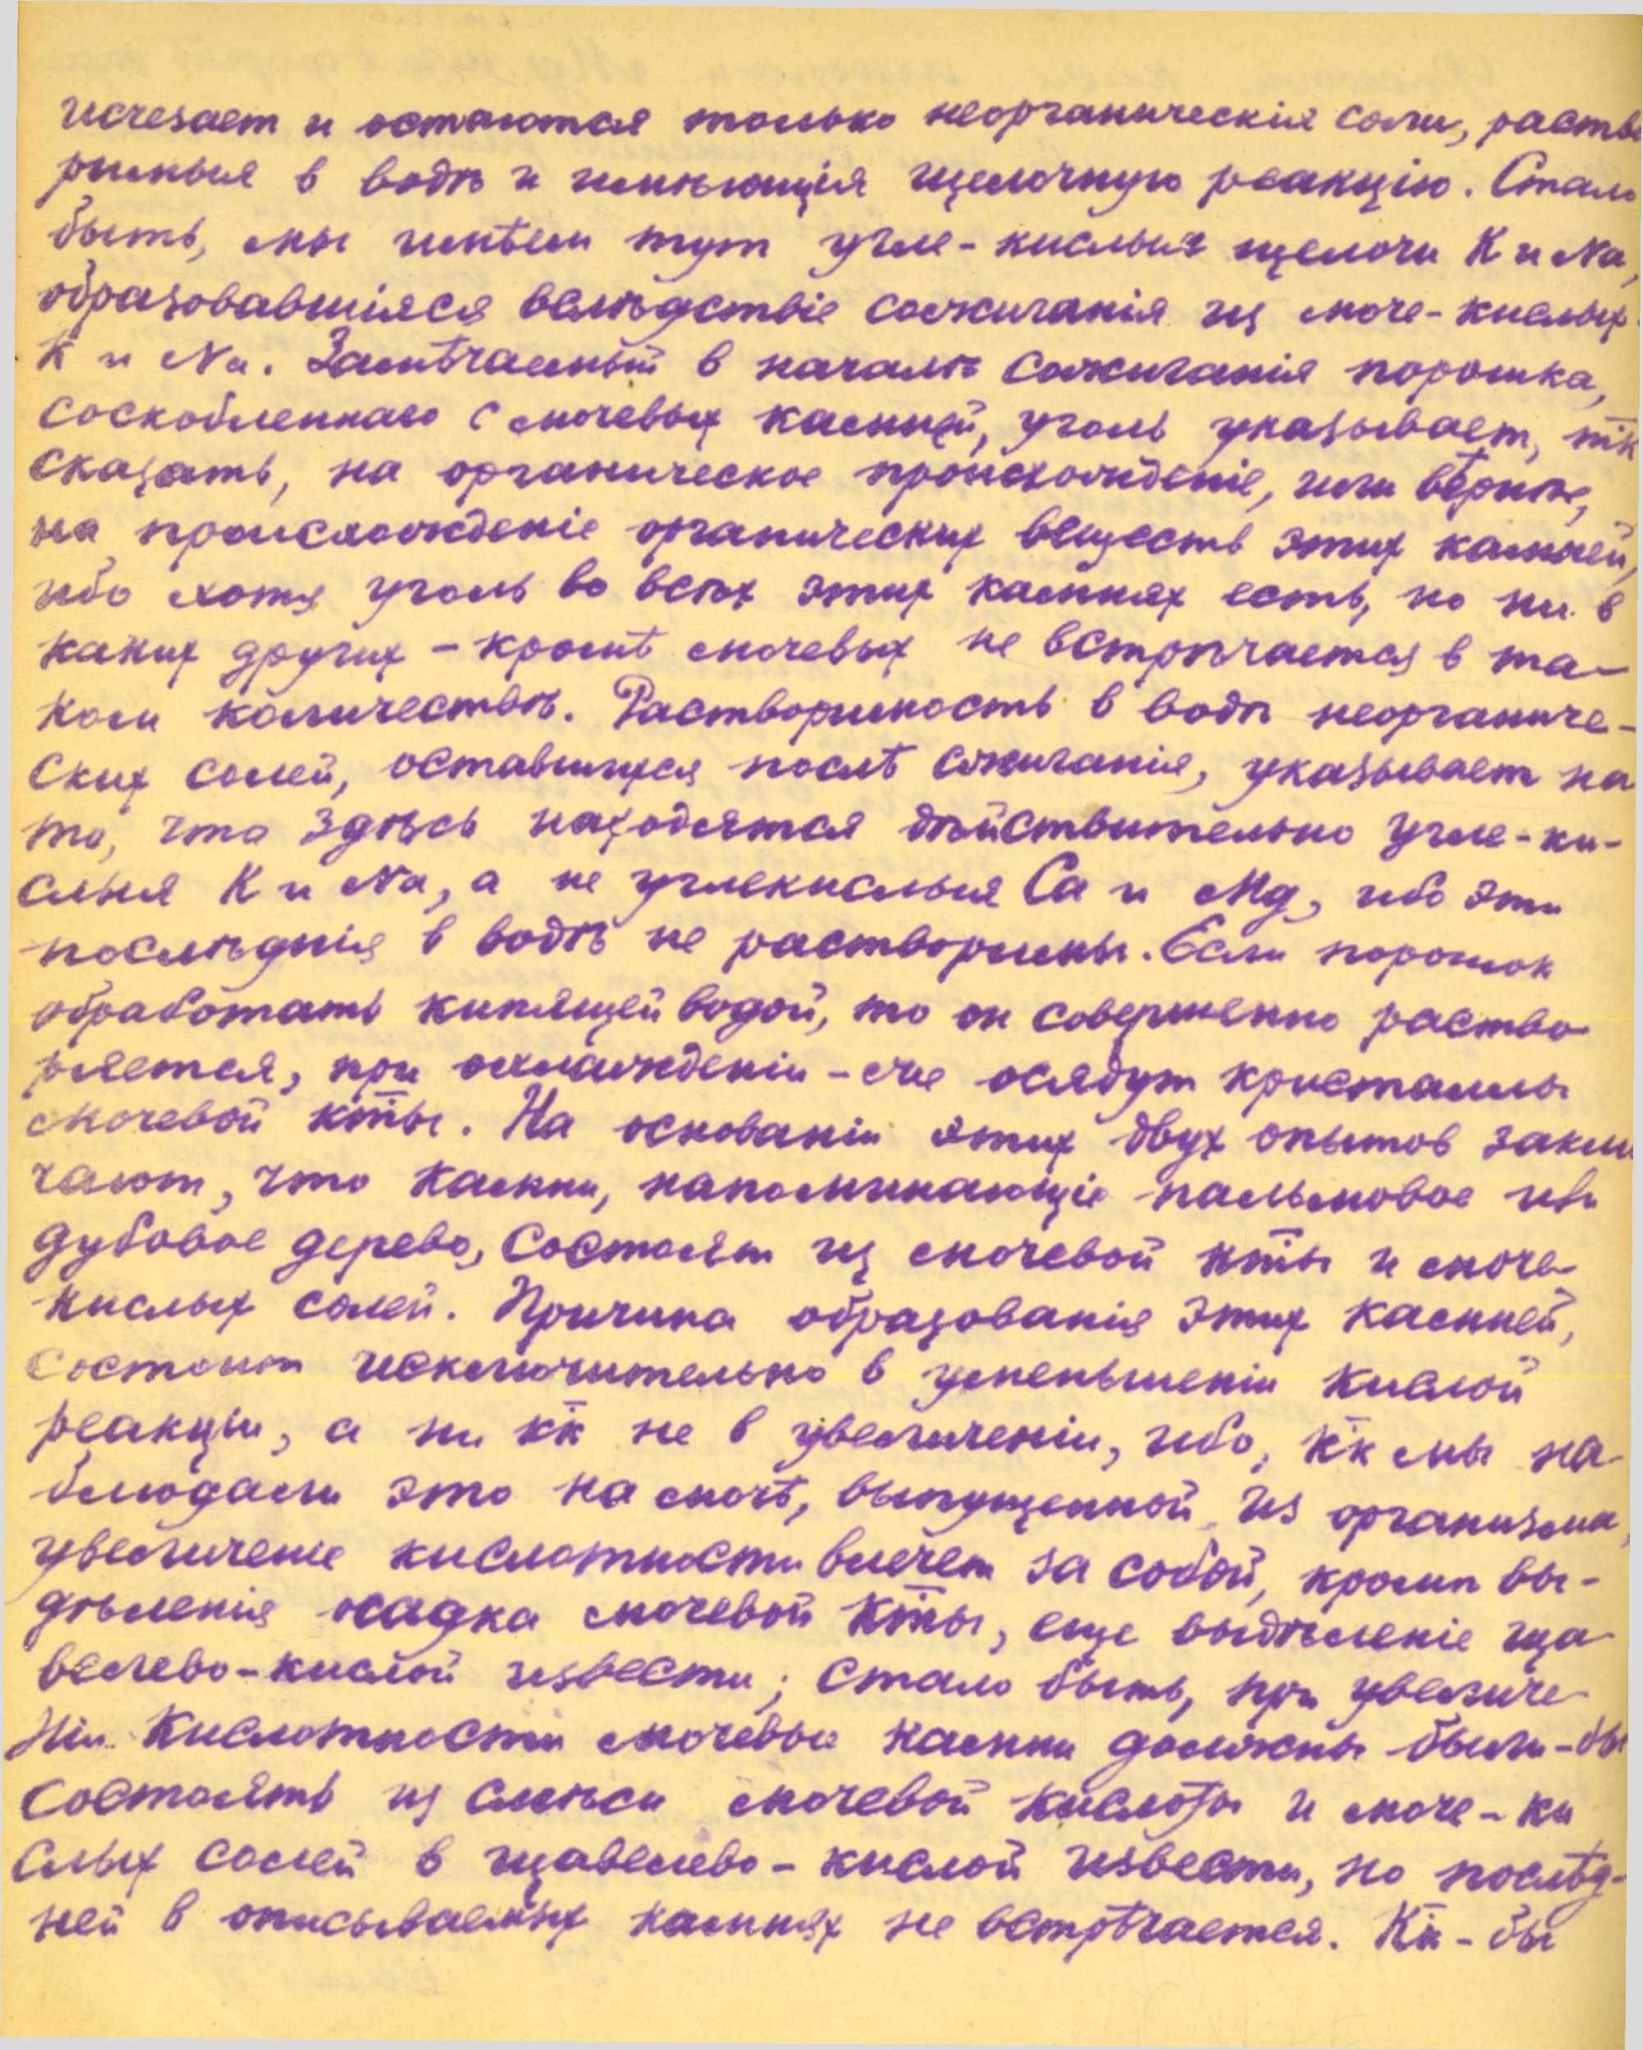 исчезает и остаются только неорганическія соли, раство
римыя в водѣ и имѣющія щелочную реакцію. Стало
быть, мы имѣем тут угле-кислыя щелочи К и Na,
образовавшіяся вслѣдствіе сожиганія из моче-кислых
К и Na. Замѣчаемый в началѣ сожиганія порошка,
соскобленнаго с мочевых камней, уголь указывает, тк
сказать, на органическое происхожденіе, или вѣрнѣе,
на происхожденіе органических веществ этих камней,
ибо хотя уголь во всѣх этих камнях есть, но ни в
каких других - кромѣ мочевых не встрѣчается в та-
ком количествѣ. Растворимость в водѣ неорганиче-
ских солей, оставшихся послѣ сжиганія, указывает на
то, что здѣсь находятся дѣйствительно угле-ки-
слыя К и Na, а не углекислыя Са и Mg, ибо эти
послѣднія в водѣ не растворимы. Если порошок
обработать кипящей водой, то он совершенно раство
ряется, при охлажденіи - же осядут кристаллы
мочевой кты. На основаніи этих двух опытов заклю
чают, что камни, напоминающіе пальмовое или
дубовое дерево, состоят из мочевой кты и моче-
кислых солей. Причина образованія этих камней,
состоит исключительно в уменьшеніи кислой
реакціи, а ни кк не в увеличеніи, ибо, кк мы на-
блюдаем это на мочѣ, выпущенной из организма,
увеличеніе кислотности влечет за собой, кромѣ вы-
дѣленія осадка мочевой кты, еще выдѣленіе ща-
велево-кислой извести; стало быть, при увеличе-
ніи кислотности мочевые камни должны были-бы
состоять из смѣси мочевой кислоты и моче-ки
слых солей в щавелево-кислой извести, но послѣд-
ней в описываемых камнях не встрѣчается. Кк-бы